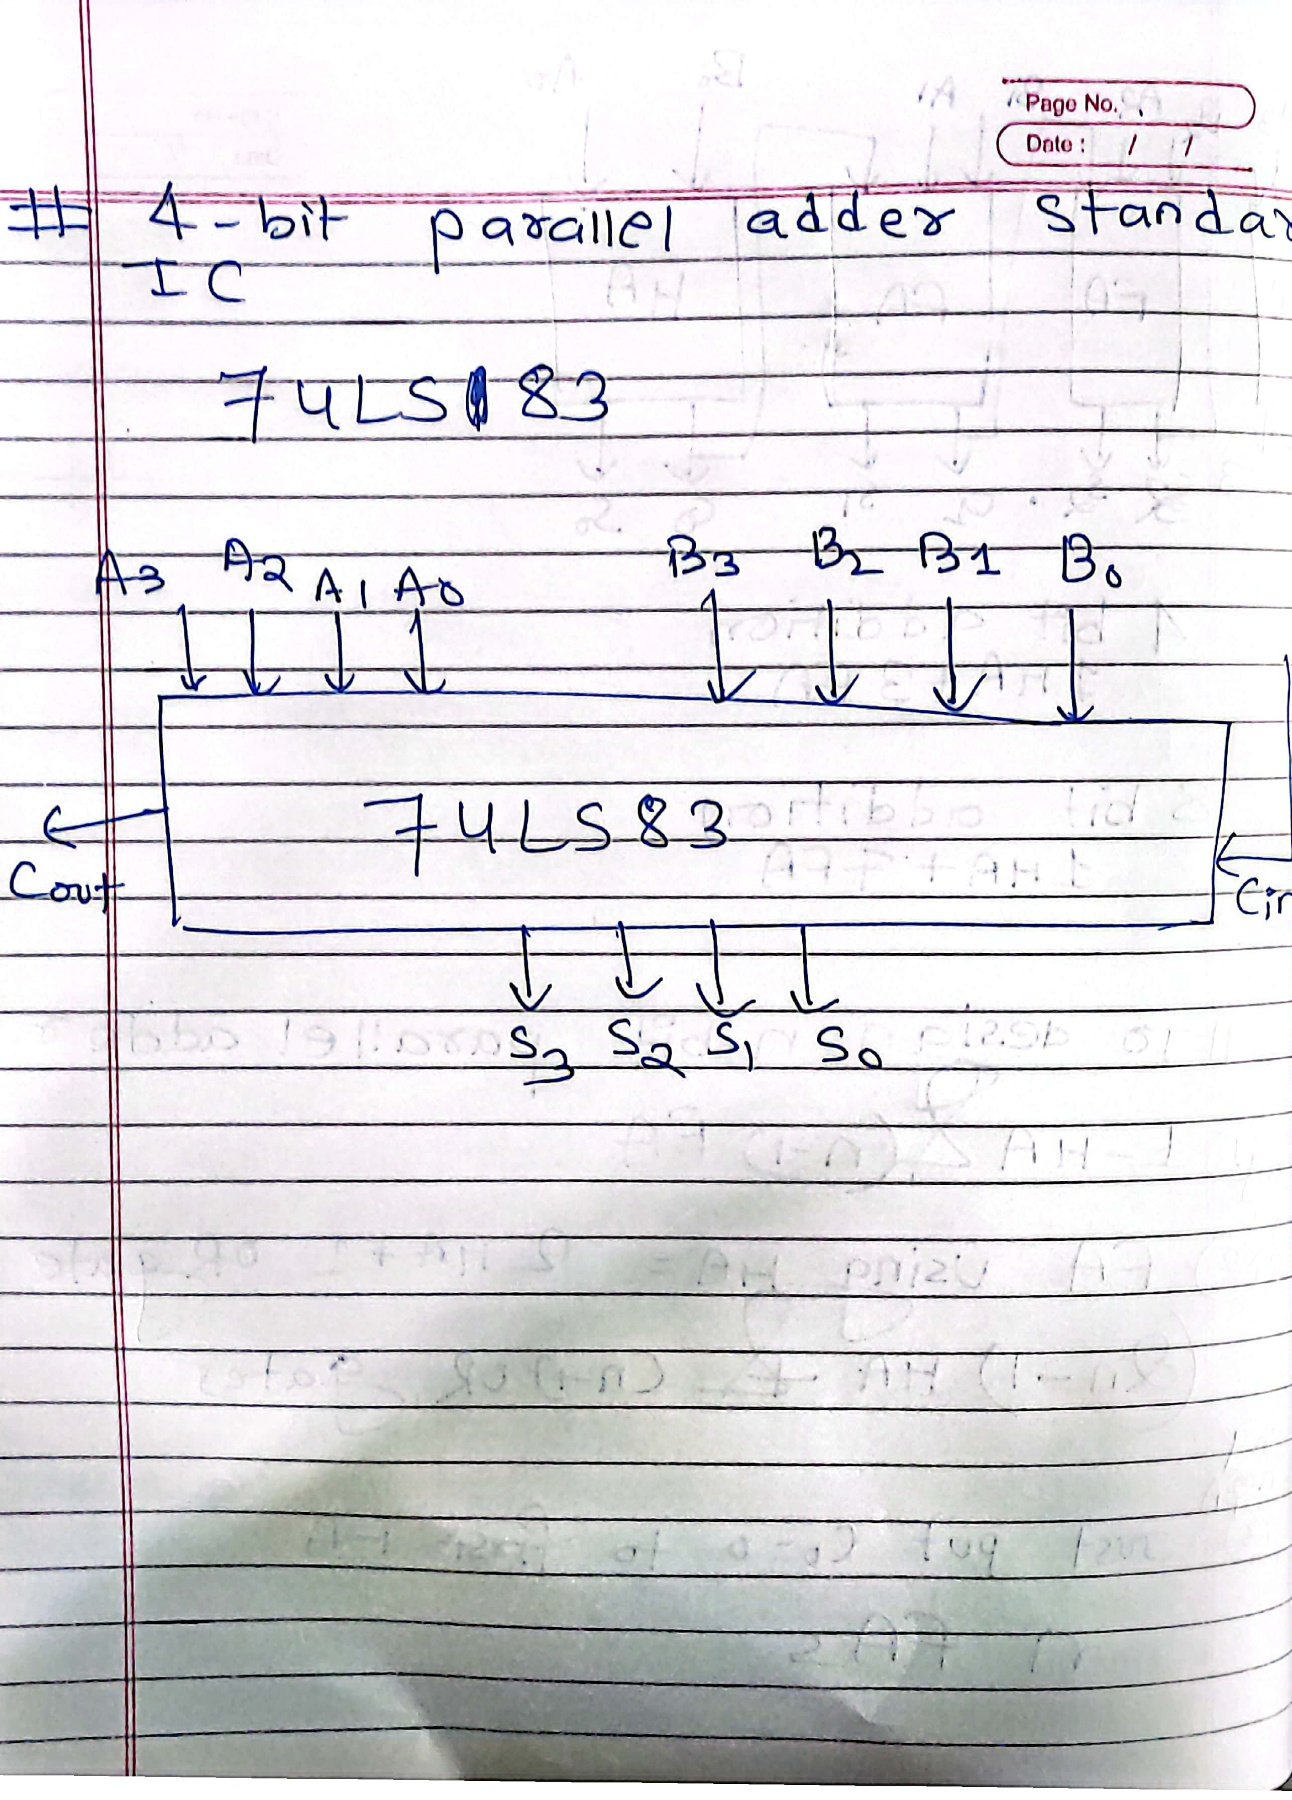 Page No.
Date : / /
# 4-bit parallel adder standar
IC
74LS 83
A3 A2 A1 A0 B3 B2 B1 B0
74LS83
Cout
Cin
S3 S2 S1 S0